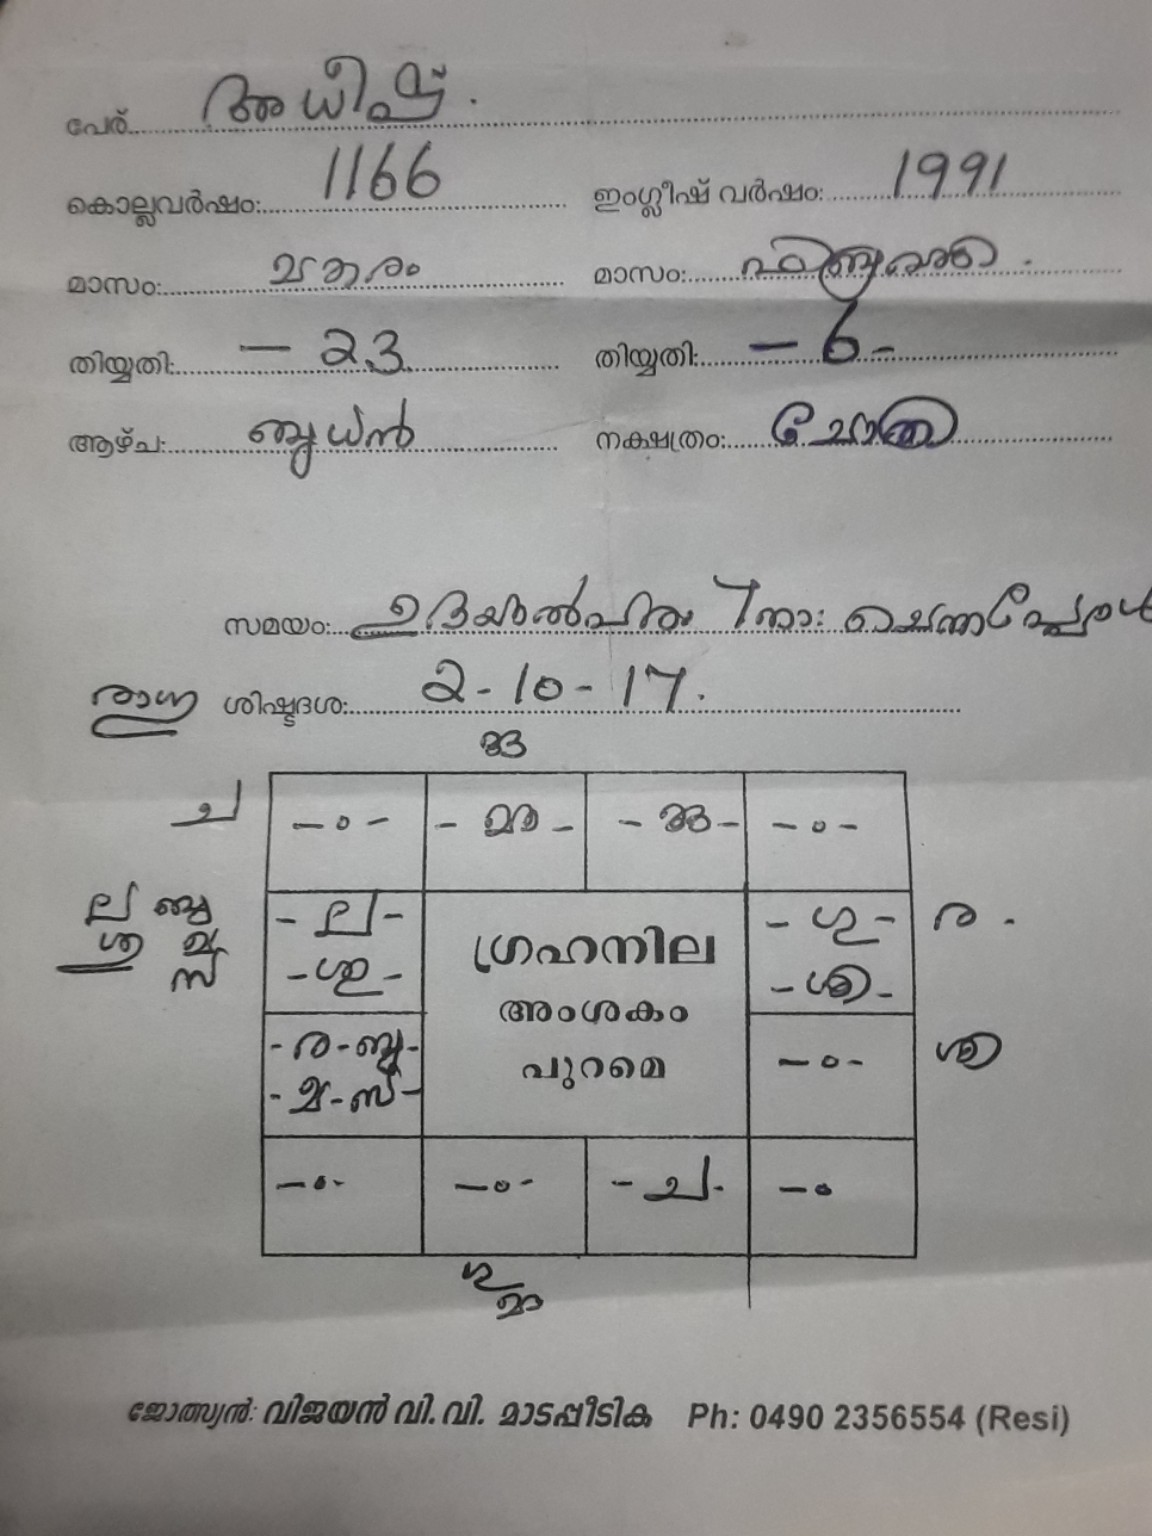 പേര് അധീഷ്.
കൊല്ലവർഷം: 1166 ഇംഗ്ലീഷ് വർഷം: 1991
മാസം: മകരം മാസം: ഫിബ്രുവരി.
തിയ്യതി: - 23 തിയ്യതി: - 6 -
ആഴ്ച: ബുധൻ നക്ഷത്രം: ചോതി
സമയം: ഉദയാൽപരം 7 നാ: ചെന്നപ്പോൾ
രാഹു ശിഷ്ടദശ: 2-10-17.
ച -o- - മാ - -o-
ല ബു - ല - ഗ്രഹനില - ഗു - ര .
ശു മ - ശു - അംശകം - ശി -
സ് - ര - ബു - പുറമെ -o- ശി
- മ - സ് -
-o- -o- - ച - -o
ഗു
മാ
ജോത്സ്യൻ: വിജയൻ വി.വി. മാടപ്പീടിക Ph: 0490 2356554 (Resi)